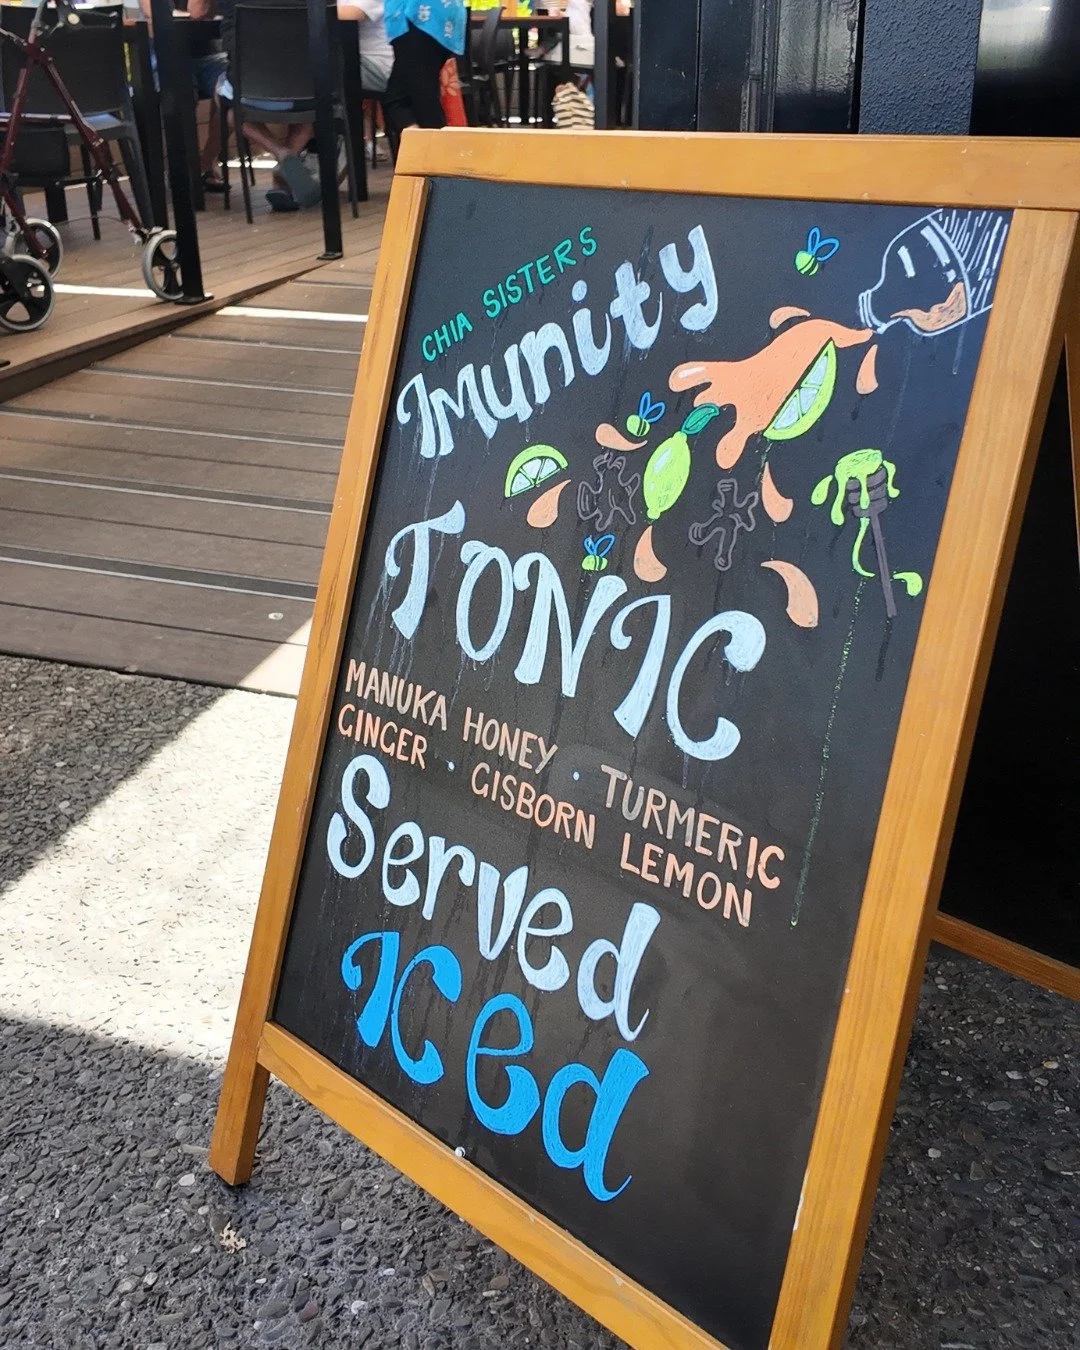 CHIA SISTERS
Imunity
TONIC
MANUKA HONEY · TURMERIC
GINGER · GISBORN LEMON
Served
Iced